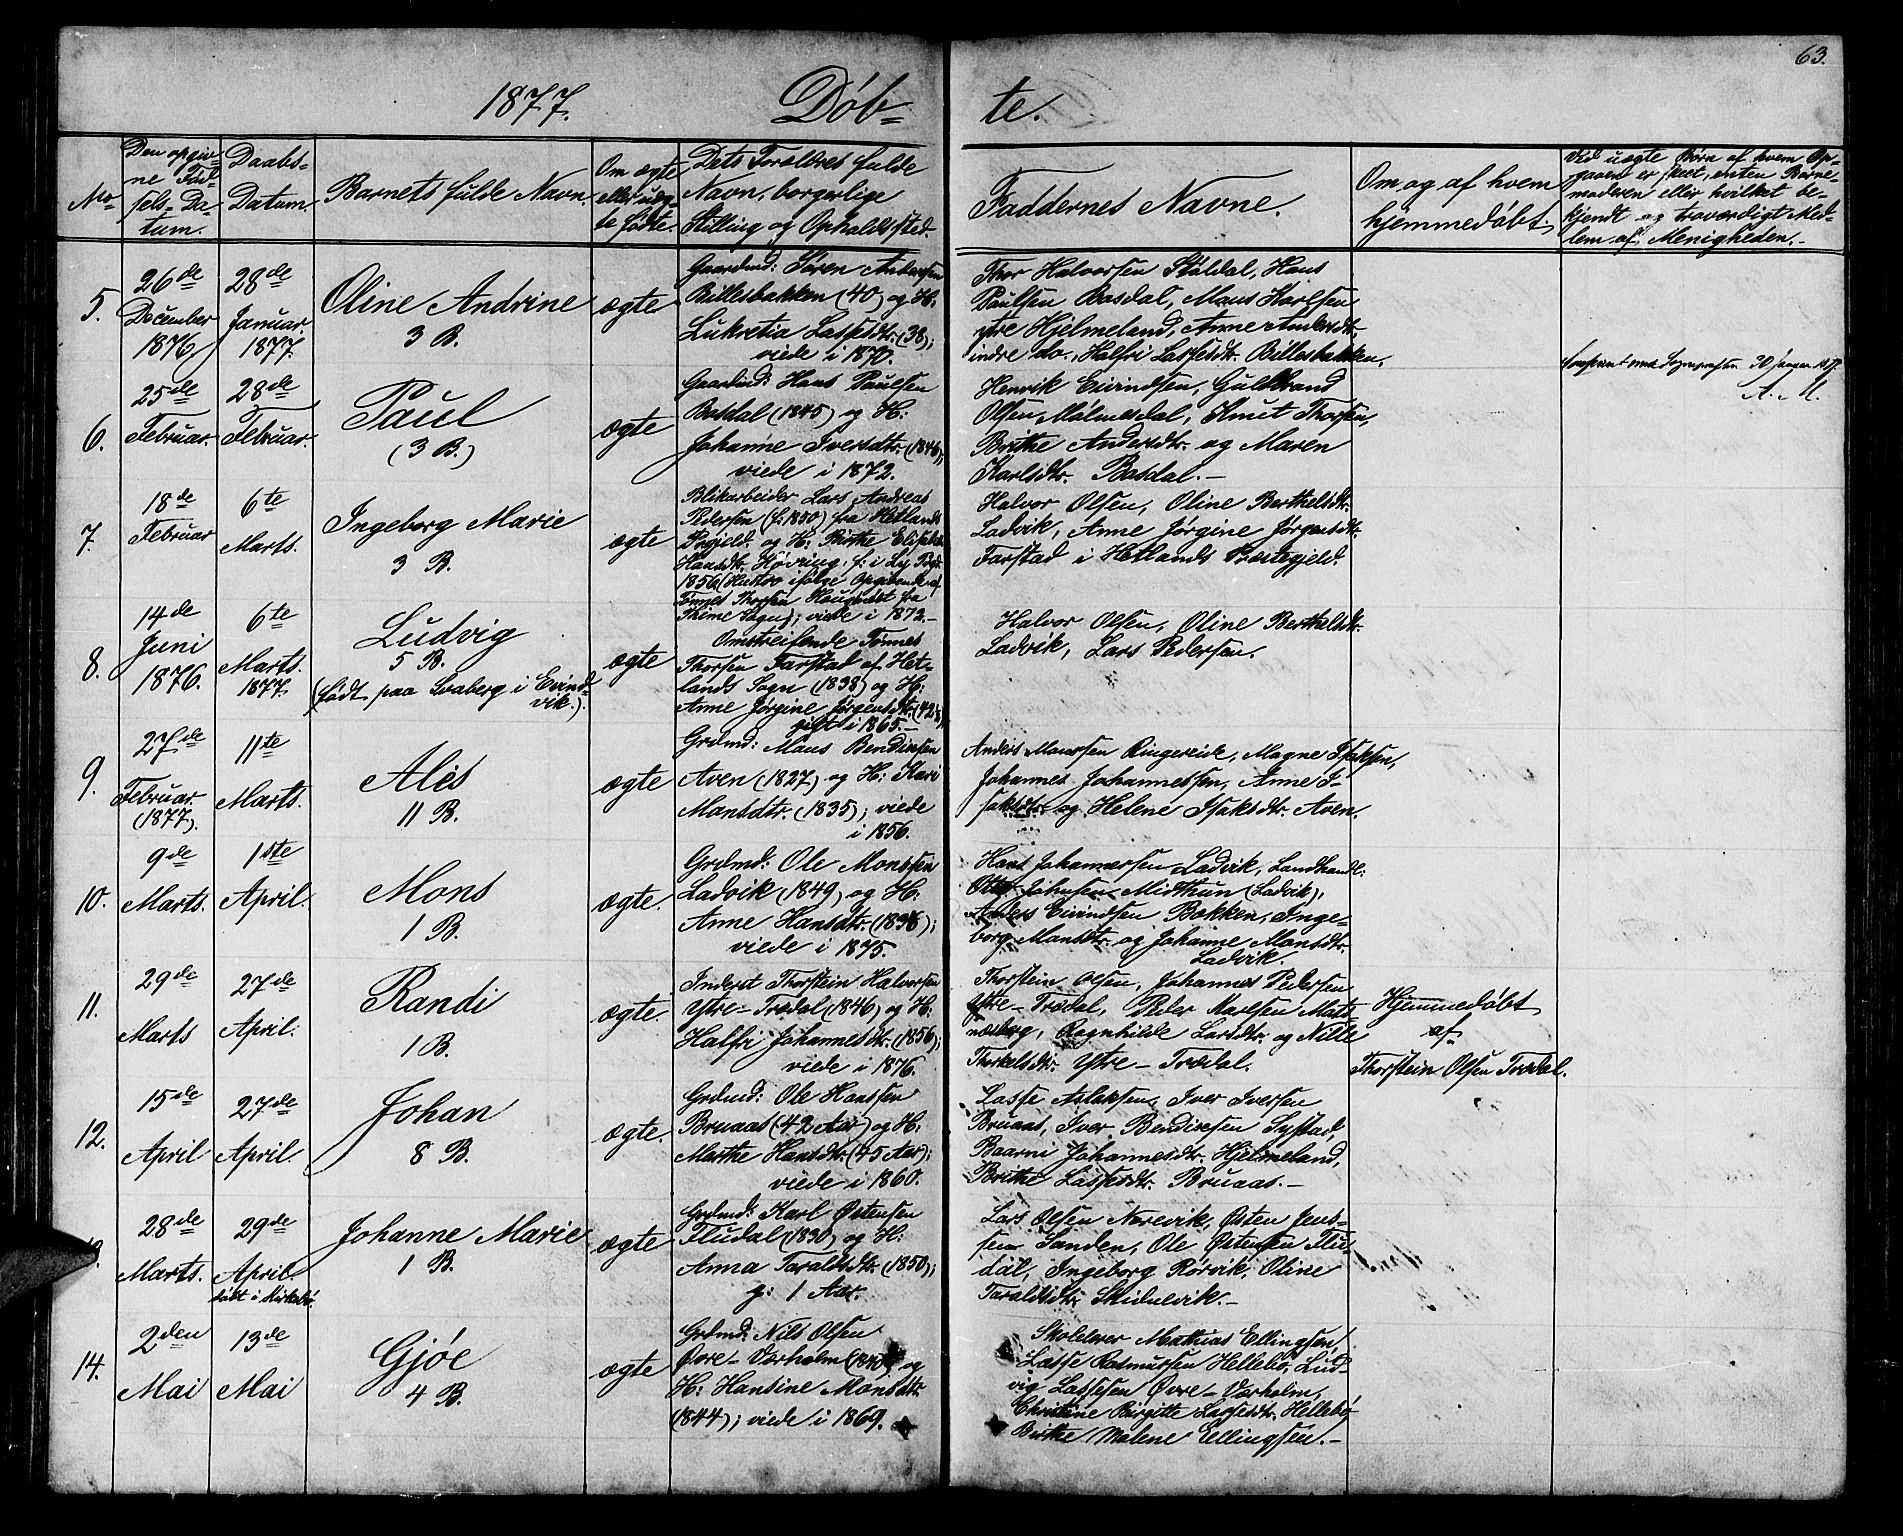 63.
1877. Døb= te.
No
Den opgiv-
ne Fød-
sels- Da-
tum.
Daabs-
Datum.
Barnets fulde Navn.
Om ægte
eller uæg-
te fødte.
Dets Forældres fulde
Navn, borgerlige
Stilling og Opholdssted.
Faddernes Navne.
Om og af hvem
hjemmedøbt.
Ved uægte Børn af hvem Op-
gaven er skeet, enten Barne-
moderen eller hvilket be-
kjendt og troværdigt Med-
lem af Menigheden.-
5.
26de
December
1876
28de
Januar
1877
Oline Andrine
3 B.
ægte
Gaardmd: Søren Andersen
Billesbakken (40) og H:
Lukretia Lassesdtr. (38);
viede i 1870.
Thor Halvorsen Støldal, Hans
Paulsen Basdal, Mons Karlsen
ytre Hjelmeland, Anne Andersdtr.
indre do., Halfri Lassesdtr. Billesbakken.
30 Januar 1877.
A. M.
6.
25de
Februar.
28de
Februar.
Paul
(3 B.)
ægte
Gaardmd: Hans Paulsen
Basdal (1845) og H:
Johanne Iversdtr. (1846);
viede i 1872.
Henrik Eivindsen, Guldbrand
Olsen Mølmesdal, Knut Thorsen,
Brithe Andersdtr. og Maren
Karlsdtr. Basdal.-
7.
18de
Februar
6te
Marts.
Ingeborg Marie
3 B.
ægte
Blikarbeider Lars Andreas
Pedersen (f: 1850) fra Hetlands
Prgjeld. og H: Birthe Elisabeth
Hansdtr. Høvring, f: i Lye Prgj.
1856 (Hustro ifølge Opgivende af
Tønnes Thorsen Haugnæst fra
Thime Sogn); viede i 1872.-
Halvor Olsen, Oline Berthelsdtr.
Ladvik, Anne Jørgine Jørgensdtr.
Tarstad i Hetlands Præstegjeld.
8.
14de
Juni
1876.
6te
Marts.
1877
Ludvig
5 B.
(født paa Svaberg i Evind-
vik.).
ægte
Omstreifende Tønnes
Thorsen Tarstad af Het-
lands Sogn (1838) og H:
Anne Jørgine Jørgensdtr. (42½)
gift i 1865.-
Halvor Olsen, Oline Berthelsdtr.
Ladvik, Lars Pedersen.
9.
27de
Februar.
(1877).
11te
Marts.
Alis
11 B.
ægte
Grdmd: Mons Bendixsen
Aven (1827) og H: Kari
Monsdtr. (1835); viede
i 1856.
Anders Monssen Ringereide, Magne Isaksen,
Johannes Johannessen, Anne I-
saksdtr. og Helene Isaksdtr. Aven.
10.
9de
Marts.
1ste
April.
Mons
1 B.
ægte.
Grdmd: Ole Monssen
Ladvik (1849) og H:
Anne Hansdtr. (1836);
viede i 1875.
Hans Johannessen Ladvik, Landhandl:
Otto Johnsen Midthun (Ladvik),
Anders Eivindsen Bakken, Inge-
borg Monsdtr. og Johanne Monsdtr.
Ladvik.
11.
29de
Marts
27de
April.
Randi
1 B.
ægte
Inderst Thorstein Halvorsen
Ytre- Trædal (1846) og H:
Halfri Johannesdtr. (1856);
viede i 1876.
Thorstein Olsen, Johannes Pedersen
Ytre- Trædal, Peder Karlsen Mats
næsberg, Ragnhilde Larsdtr. og Nille
Thorkelsdtr. Ytre- Trædal.
Hjemmedøbt
af
Thorstein Olsen Trædal.
12.
15de
April
27de
April.
Johan
8 B.
ægte.
Grdmd: Ole Hanssen
Bruaas (42 Aar) og H:
Marthe Hansdtr. (45 Aar);
viede i 1860.
Lasse Aslaksen, Iver Iversen
Bruaas, Iver Bendixsen Systad
Baarni Johannesdtr. Hjelmeland,
Brithe Lassesdtr. Bruaas.-
28de
Marts.
29de
April.
døbt i Kirkebø.
Johanne Marie
1 B.
ægte
Grdmd: Karl Østensen
Fludal (1830) og H:
Anna Taraldsdtr. (1850);
g: 1 Aar.
Lars Olsen Nørevik, Østen Jens-
sen Sanden, Ole Østensen Flu-
dal, Ingeborg Rørvik, Oline
Taraldsdtr. Skidulvik.-
14.
2den
Mai
13de
Mai
Gjøe
4 B.
ægte
Grdmd: Nils Olsen
Øvre- Værholm (1840) og
H: Hansine Monsdtr.
(1844); viede i 1869.
Skolelærer Mathias Ellingsen,
Lasse Rasmussen Hellebø, Lud-
vig Lassesen Øvre- Værholm,
Christine Birgitte Lassesdtr. Hellebø
Birthe Malene Ellingsen.-